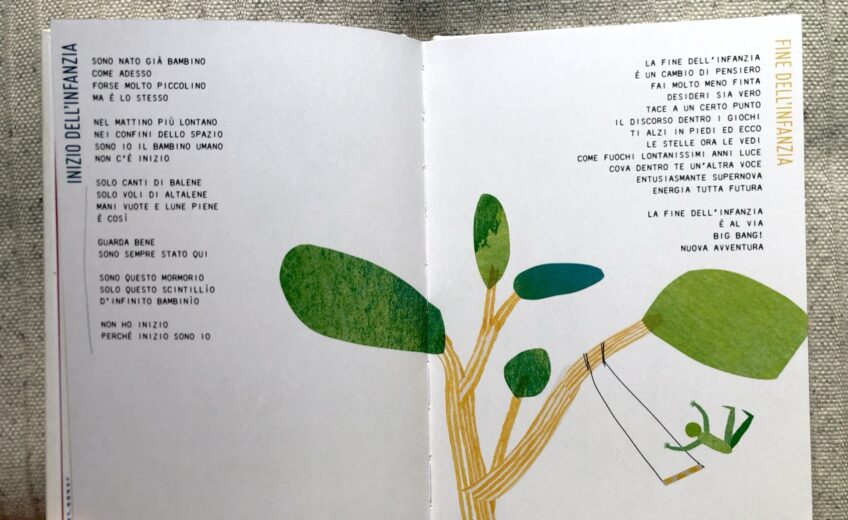 INIZIO DELL'INFANZIA
SONO NATO GIÀ BAMBINO
COME ADESSO
FORSE MOLTO PICCOLINO
MA È LO STESSO
NEL MATTINO PIÙ LONTANO
NEI CONFINI DELLO SPAZIO
SONO IO IL BAMBINO UMANO
NON C'È INIZIO
SOLO CANTI DI BALENE
SOLO VOLI DI ALTALENE
MANI VUOTE E LUNE PIENE
È COSÌ
GUARDA BENE
SONO SEMPRE STATO QUI
SONO QUESTO MORMORIO
SOLO QUESTO SCINTILLÌO
D'INFINITO BAMBINÌO
NON HO INIZIO
PERCHÉ INIZIO SONO IO
FINE DELL'INFANZIA
LA FINE DELL'INFANZIA
È UN CAMBIO DI PENSIERO
FAI MOLTO MENO FINTA
DESIDERI SIA VERO
TACE A UN CERTO PUNTO
IL DISCORSO DENTRO I GIOCHI
TI ALZI IN PIEDI ED ECCO
LE STELLE ORA LE VEDI
COME FUOCHI LONTANISSIMI ANNI LUCE
COVA DENTRO TE UN'ALTRA VOCE
ENTUSIASMANTE SUPERNOVA
ENERGIA TUTTA FUTURA
LA FINE DELL'INFANZIA
È AL VIA
BIG BANG!
NUOVA AVVENTURA